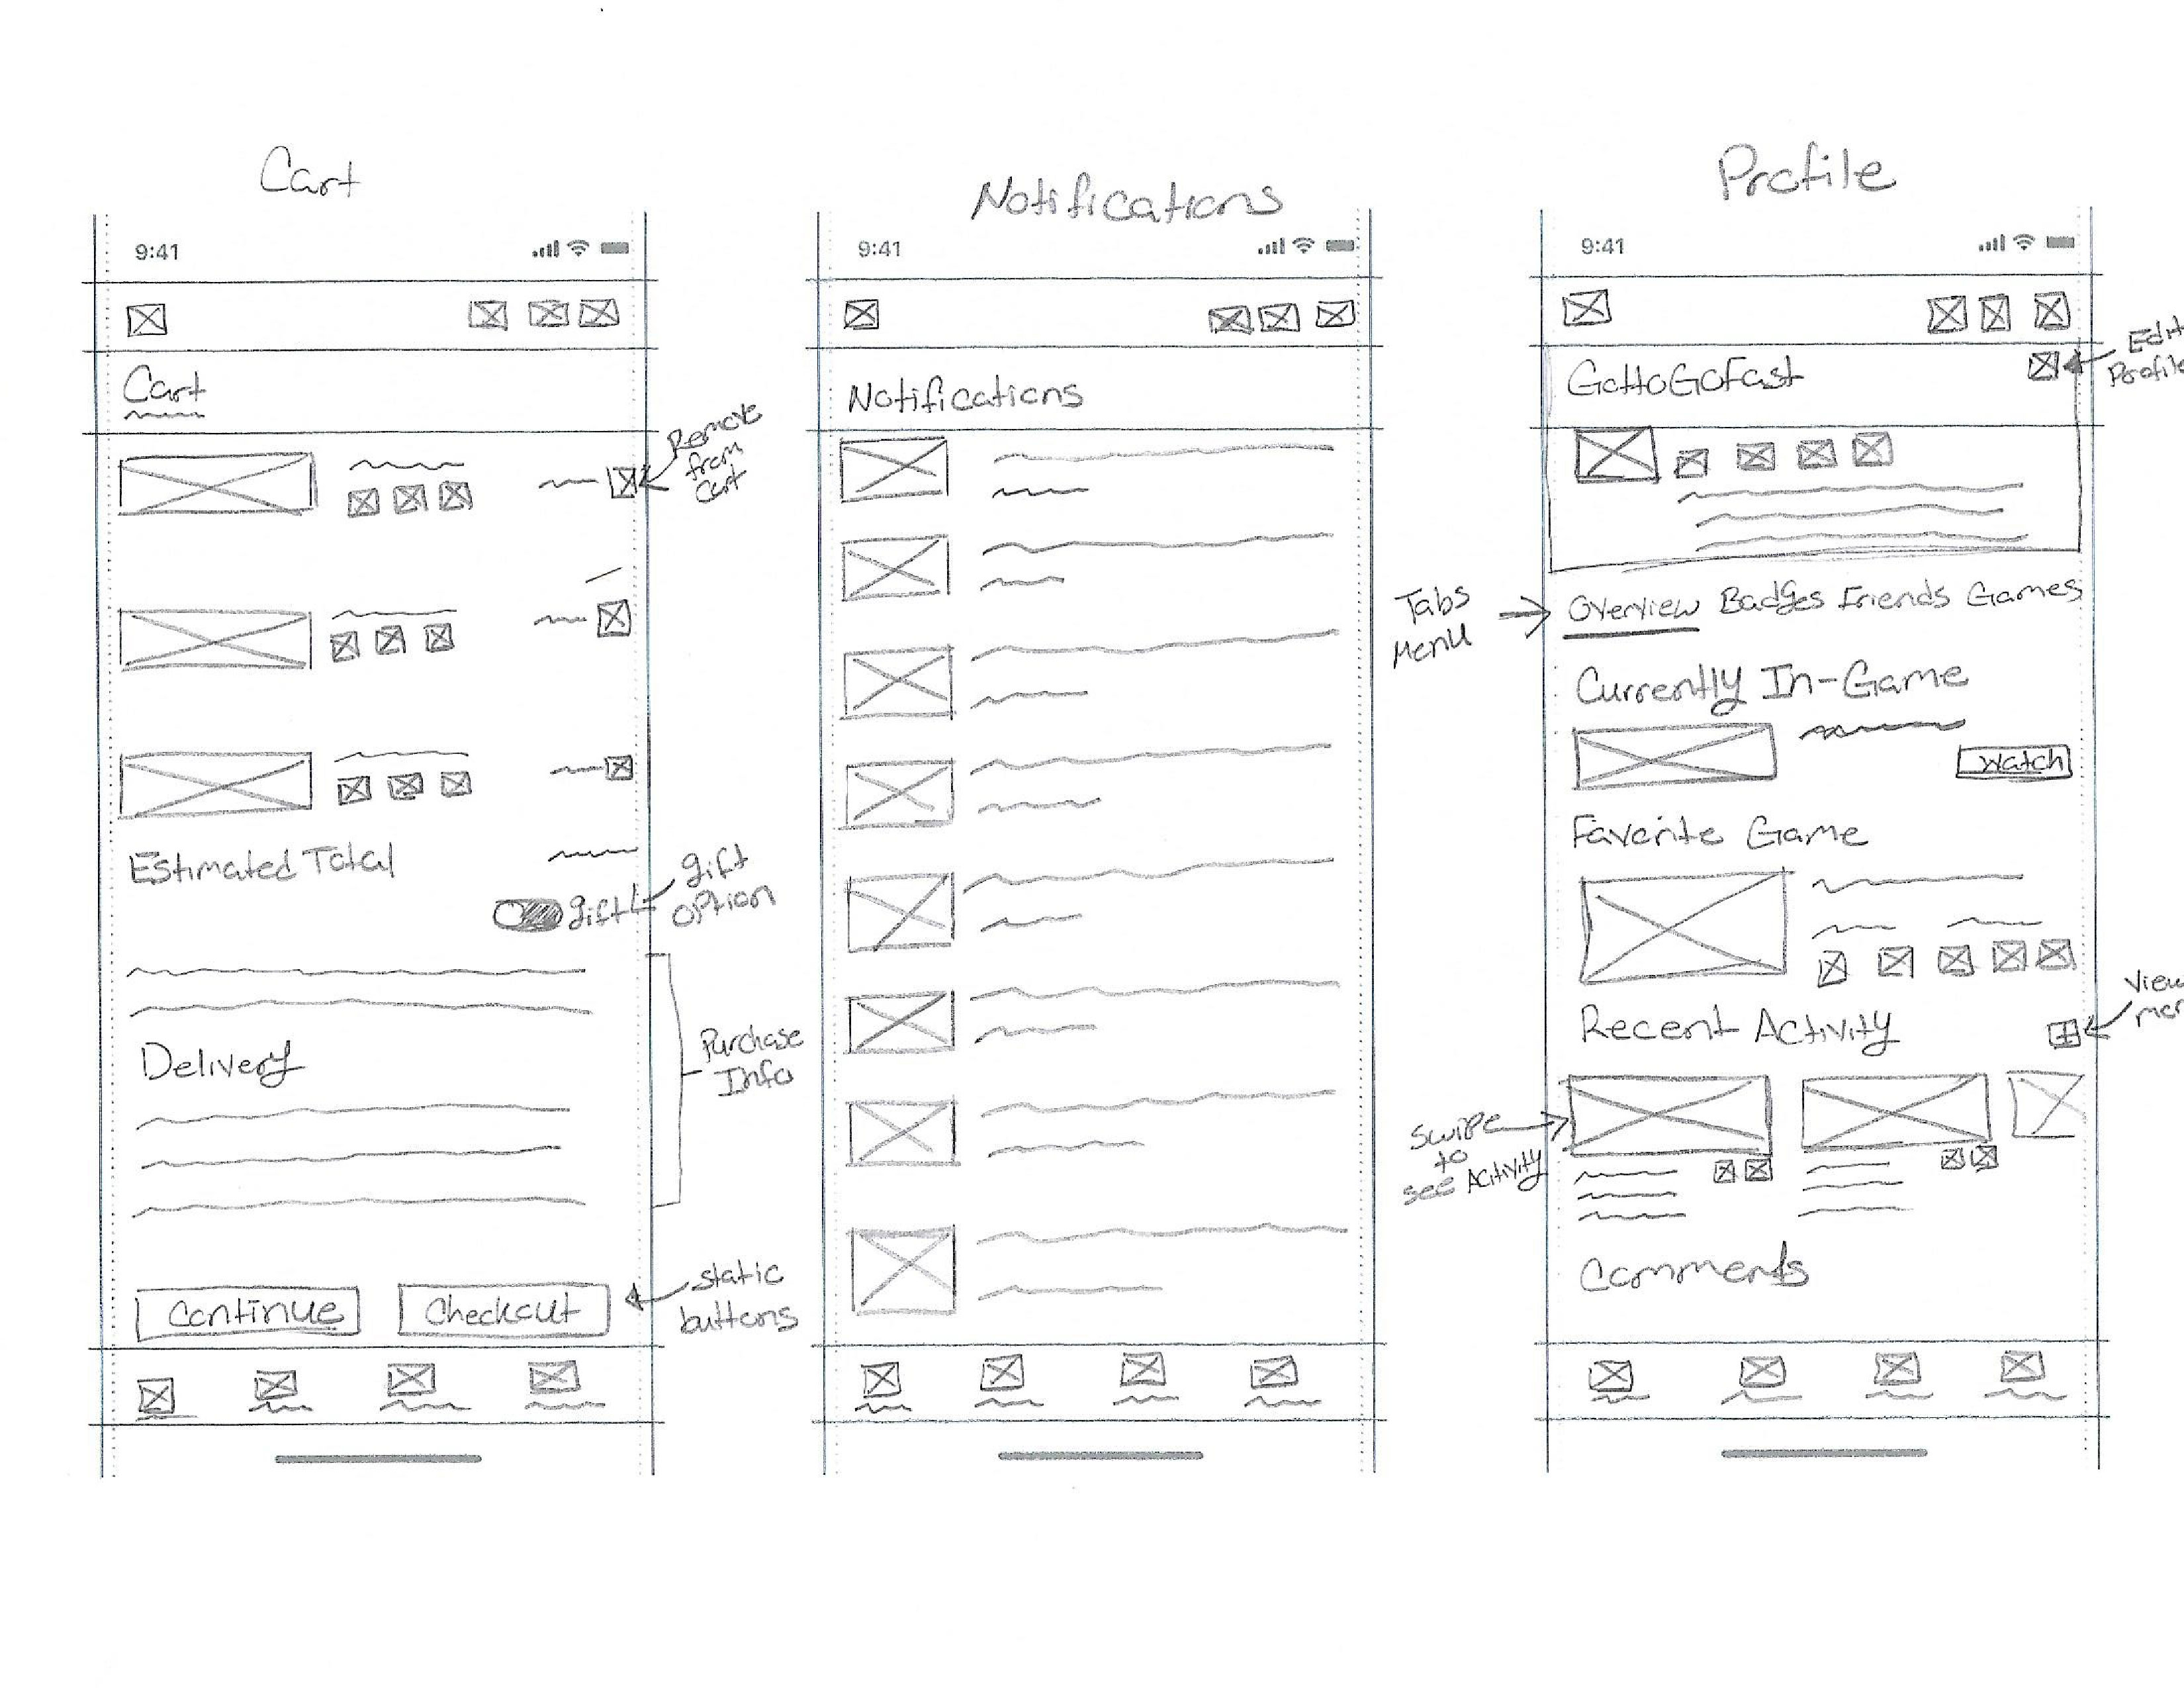 Cart
9:41
Cart
Remove
from
Cart
Estimated Total
gift
gift
option
Delivery
Purchase
Info
Continue
Checkout
static
buttons
Notifications
9:41
Notifications
Profile
9:41
GottoGoFast
Edit
Profile
Tabs
Menu
Overview Badges Friends Games
Currently In-Game
Watch
Favorite Game
Recent Activity
View
mor
swipe
to
see Activity
Comments